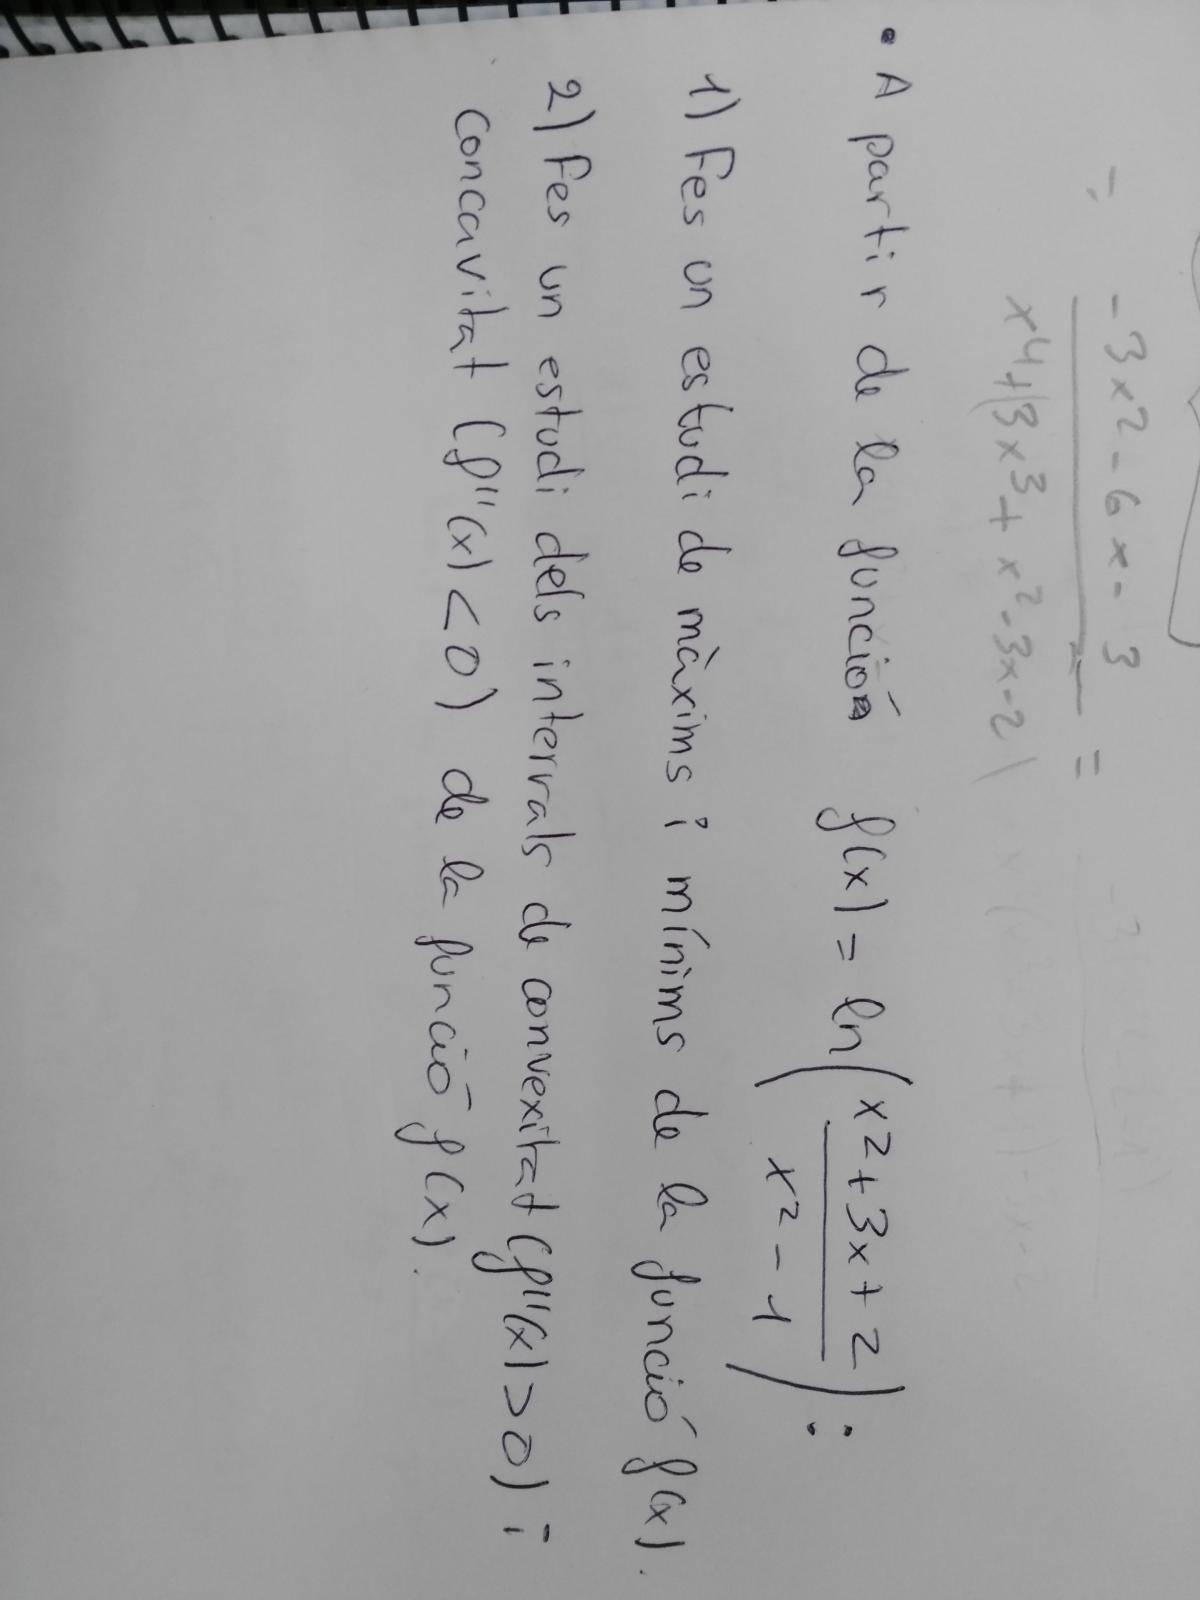 = -3x2-6x-3 / x4+3x3+x2-3x-2 =
• A partir de la funció f(x) = ln(x2+3x+2 / x2-1):
1) Fes un estudi de màxims i mínims de la funció f(x).
2) Fes un estudi dels intervals de convexitat (f''(x)>0) i
concavitat (f''(x)<0) de la funció f(x).